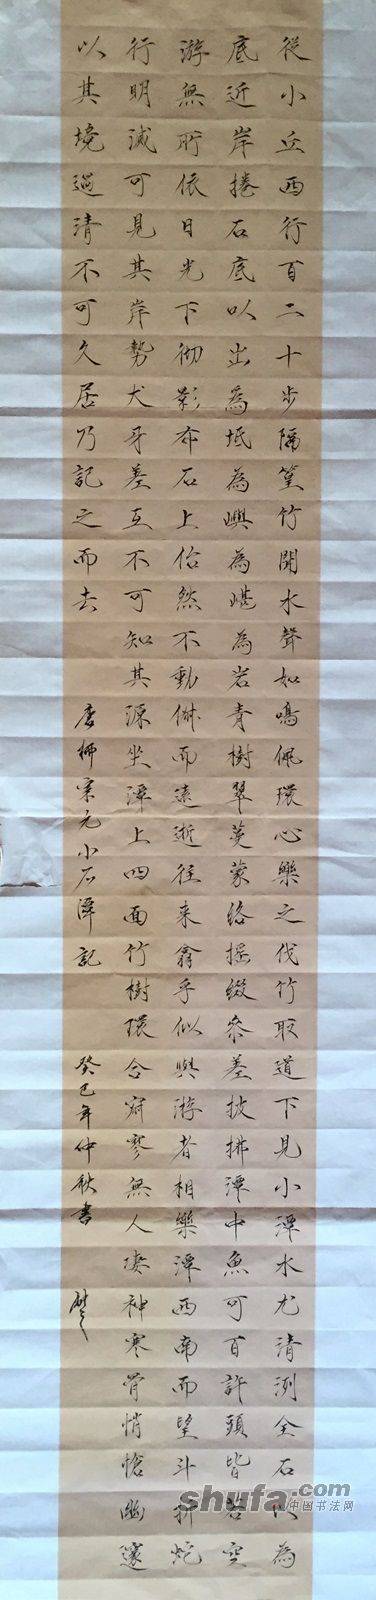 從小丘西行百二十步隔篁竹聞水聲如鳴佩環心樂之伐竹取道下見小潭水尤清洌全石以為
底近岸捲石底以出為坻為嶼為嵁為岩青樹翠蔓蒙絡搖綴參差披拂潭中魚可百許頭皆若空
游無所依日光下彻影布石上佁然不動俶而遠逝往来翕乎似與游者相樂潭西南而望斗折蛇
行明滅可見其岸勢犬牙差互不可知其源坐潭上四面竹樹環合寂寥無人凄神寒骨悄愴幽邃
以其境過清不可久居乃記之而去 唐柳宗元小石潭記 癸巳年仲秋書
shufa.com
中国书法网